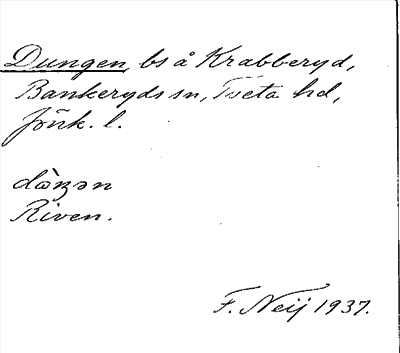 Dungen, bs å Krabberyd,
Bankeryds sn, Tveta hd,
Jönk. l.
dàŋən
Riven.
F. Neij 1937.